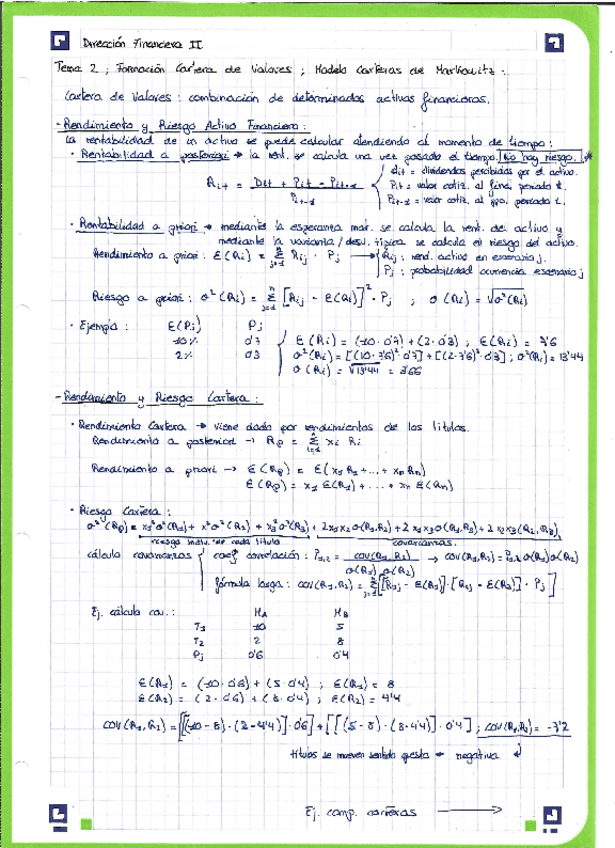 Dirección Financiera II
Tema 2 ; Formación Cartera de Valores ; Modelo Carteras de Markowitz.
Cartera de Valores : combinación de determinados activos financieros.
- Rendimiento y Riesgo Activo Financiero :
La rentabilidad de un activo se puede calcular atendiendo al momento de tiempo :
· Rentabilidad a posteriori → la rent. se calcula una vez pasado el tiempo. No hay riesgo.
Ri,t = Dit + Pit - Pit-1 / Pit-1
Dit = dividendos percibidos por el activo.
Pit = valor cotiz. al final periodo t.
Pit-1 = valor cotiz. al ppio. periodo t.
· Rentabilidad a priori → mediante la esperanza mat. se calcula la rent. del activo y
mediante la varianza / desv. típica se calcula el riesgo del activo.
Rendimiento a priori : E(Ri) = Σ Rij · Pj → Rij : rend. activo en escenario j.
Pj : probabilidad ocurrencia escenario j
Riesgo a priori : σ²(Ri) = Σ [Rij - E(Ri)]² · Pj ; σ(Ri) = √σ²(Ri)
· Ejemplo : E(Pi) Pj
10% 0'7
2% 0'3
E(Ri) = (10 · 0'7) + (2 · 0'3) ; E(Ri) = 7'6
σ²(Ri) = [(10 - 7'6)² 0'7] + [(2 - 7'6)² 0'3] ; σ²(Ri) = 13'44
σ(Ri) = √13'44 = 3'66
- Rendimiento y Riesgo Cartera :
· Rendimiento Cartera → viene dado por rendimientos de los títulos.
Rendimiento a posteriori → Rp = Σ xi Ri
Rendimiento a priori → E(Rp) = E(x1 R1 + ... + xn Rn)
E(Rp) = x1 E(R1) + ... + xn E(Rn)
· Riesgo Cartera :
σ²(Rp) = x1² σ²(R1) + x² σ²(R2) + x3² σ²(R3) + 2x1x2 σ(R1,R2) + 2x1x3 σ(R1,R3) + 2x2x3 (R2,R3)
riesgo indiv. de cada título covarianzas.
cálculo covarianzas coef correlación : P1,2 = cov(R1,R2) / σ(R1) σ(R2) → cov(R1,R2) = P1,2 σ(R1) σ(R2)
fórmula larga : cov(R1,R2) = Σ [[R1j - E(R1)] · [R2j - E(R2)] · Pj]
Ej. cálculo cov. : HA HB
T1 10 5
T2 2 8
Pj 0'6 0'4
E(R1) = (10 · 0'6) + (5 · 0'4) ; E(R1) = 8
E(R2) = (2 · 0'6) + (8 · 0'4) ; E(R2) = 4'4
cov(R1,R2) = [[(10 - 8) · (2 - 4'4)] · 0'6] + [[(5 - 8) · (8 - 4'4)] · 0'4] ; cov(R1,R2) = -7'2
títulos se mueven sentido opuesto ← negativa
Ej. comp. carteras →